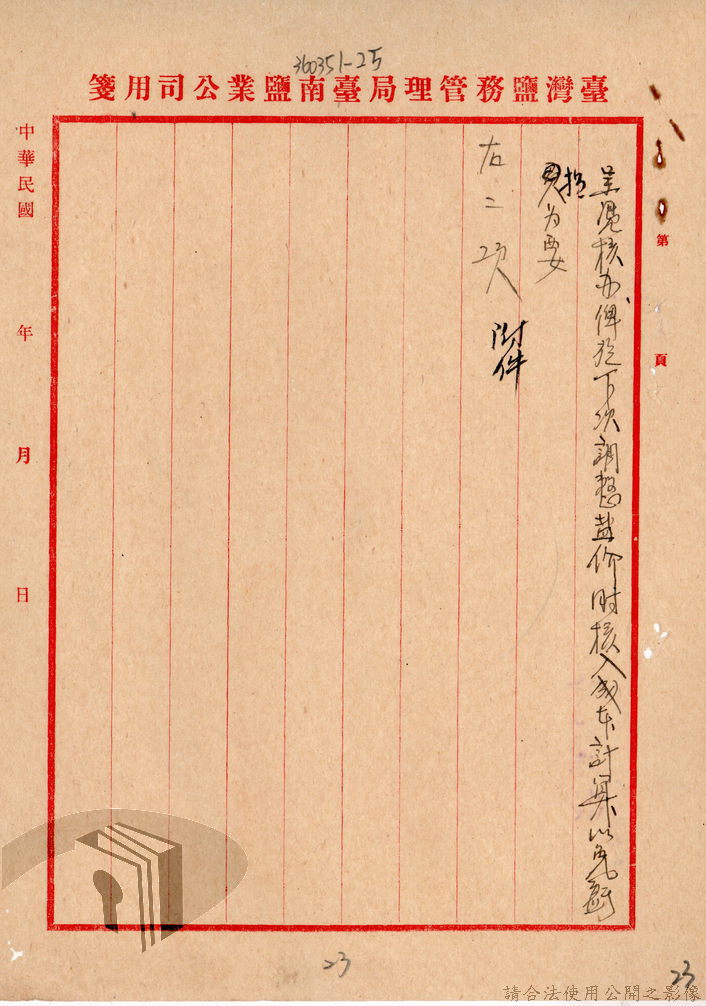 360351-25
臺灣鹽務管理局臺南鹽業公司用箋
第 頁
呈覺核办俾於下次調整盐价时核入成本計算以免虧
損为要
右二次 附件
中華民國 年 月 日
23
23
請合法使用公開之影像